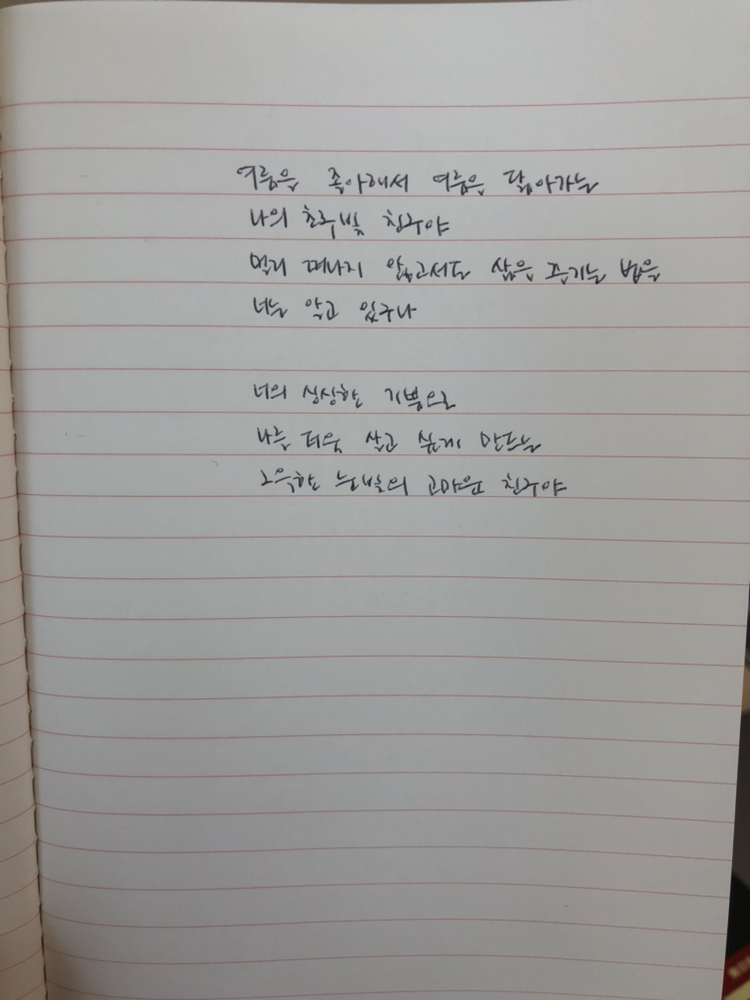 여름을 좋아해서 여름을 닮아가는
나의 초록빛 친구야
멀리 떠나지 않고서도 삶을 즐기는 법을
너는 알고 있구나
너의 싱싱한 기쁨으로
나를 더욱 살고 싶게 만드는
그윽한 눈빛의 고마운 친구야